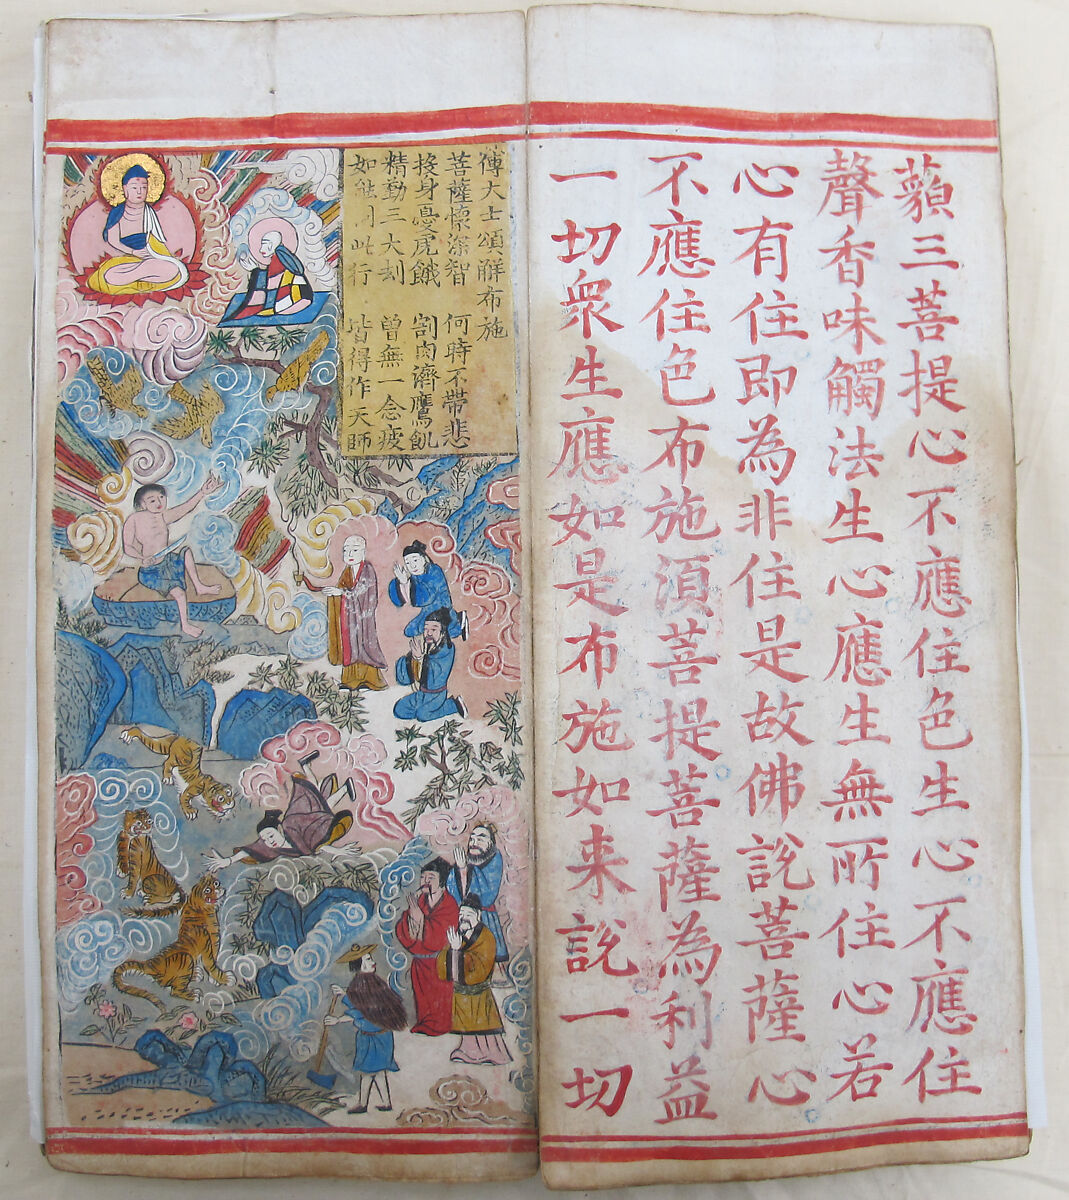 藐三菩提心不應住色生心不應住
聲香味觸法生心應生無所住心若
心有住即為非住是故佛說菩薩心
不應住色布施湏菩提菩薩為利益
一切眾生應如是布施如来說一切
傅大士頌觧布施
菩薩懷深智 何時不帶悲
投身憂虎餓 割肉濟鷹飢
精動三大刼 曾無一念疲
如能同此行 皆得作天師